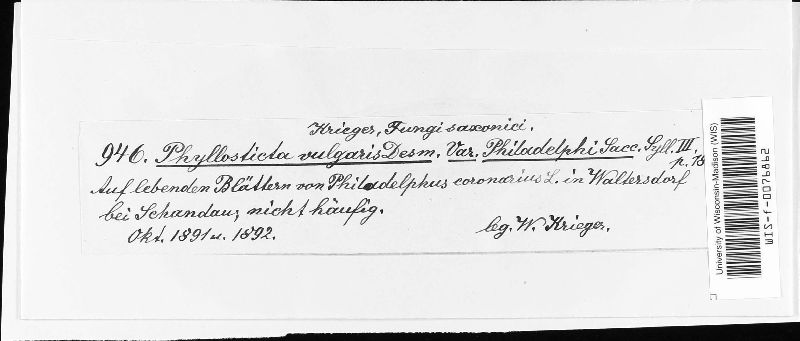 Krieger, Fungi saxonici.
946. Phyllosticta vulgaris Desm. Var. Philadelphi Sacc. Syll. III,
p. 13
Auf lebenden Blättern von Philadelphus coronarius L. in Waltersdorf
bei Schandau; nicht häufig.
Okt. 1891 u. 1892.
leg. W. Krieger.
University of Wisconsin-Madison (WIS)
WIS-f-0076862